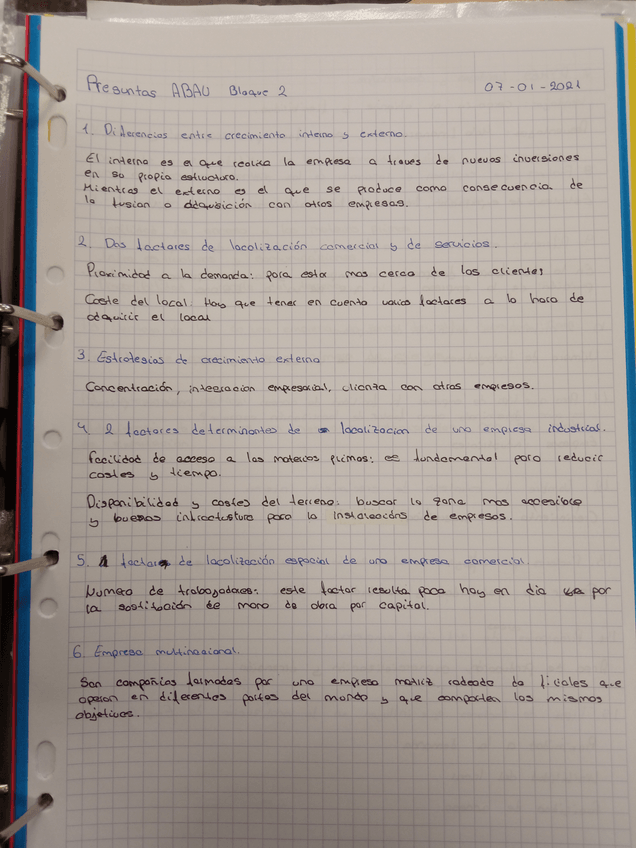 Preguntas ABAU Bloque 2
07-01-2021
1. Diferencias entre crecimiento interno y externo.
El interno es el que realiza la empresa a traves de nuevas inversiones
en su propia estructura.
Mientras el externo es el que se produce como consecuencia de
la fusion o adquisición con otras empresas.
2. Dos factores de localización comercial y de servicios.
Proximidad a la demanda: para estar mas cerca de los clientes
Coste del local: Hay que tener en cuenta varios factores a la hora de
adquirir el local
3. Estrategias de crecimiento externo
Concentración, integracion empresarial, alianza con otras empresas.
4 2 factores determinantes de localizacion de una empresa industrial.
Facilidad de acceso a las materias primas: es fundamental para reducir
costes y tiempo.
Disponibilidad y costes del terreno: buscar la zona mas accesible
y buenas infraestructura para la instalacións de empresas.
5. 1 factor de localización espacial de una empresa comercial.
Numero de trabajadores: este factor resulta poco hoy en dia por
la sostitución de mano de obra por capital.
6. Empresa multinacional.
Son compañias formadas por una empresa matriz rodeada de filiales que
operan en diferentes partes del mundo y que comparten los mismos
objetivos.